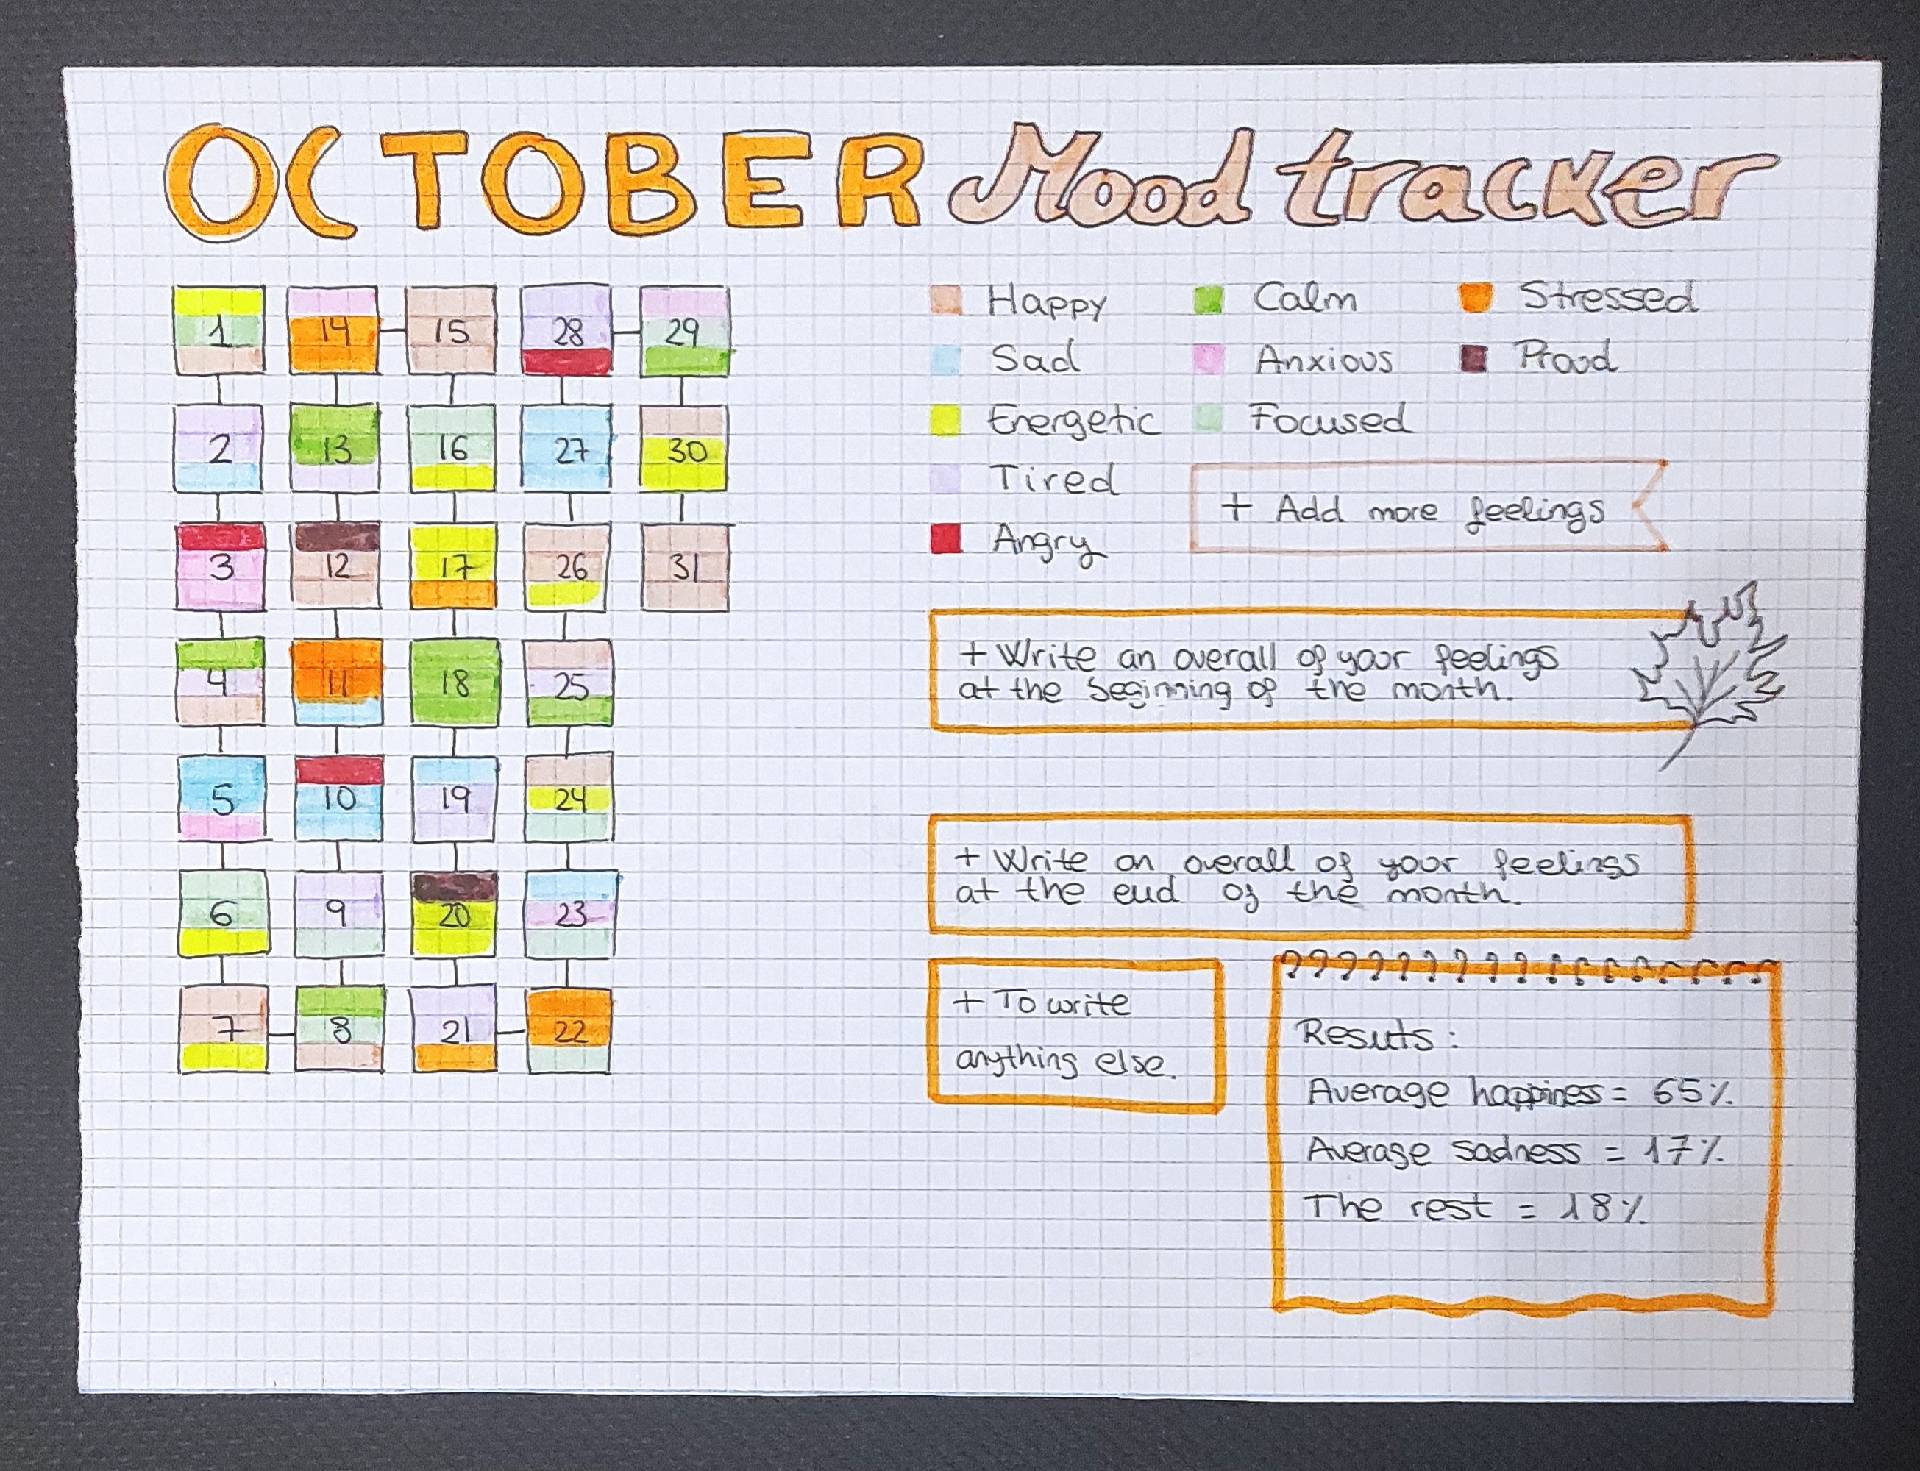 OCTOBER Mood tracker
1 14 15 28 29
2 13 16 27 30
3 12 17 26 31
4 11 18 25
5 10 19 24
6 9 20 23
7 8 21 22
Happy Calm Stressed
Sad Anxious Proud
Energetic Focused
Tired
Angry
+ Add more feelings
+ Write an overall of your feelings
at the beginning of the month.
+ Write an overall of your feelings
at the end of the month.
+ To write
anything else.
Resuts:
Average happiness = 65%
Average sadness = 17%
The rest = 18%